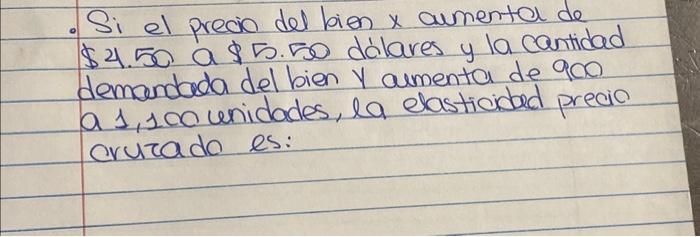 . Si el precio del bien x aumenta de
$4.50 a $5.50 dólares y la cantidad
demandada del bien Y aumenta de 900
a 1,100 unidades, la elasticidad precio
cruzado es: